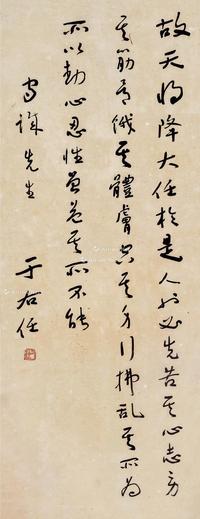 故天将降大任於是人也必先苦其心志劳
其筋骨饿其體膚空其身行拂乱其所为
所以動心忍性曾益其所不能
先生
于右任